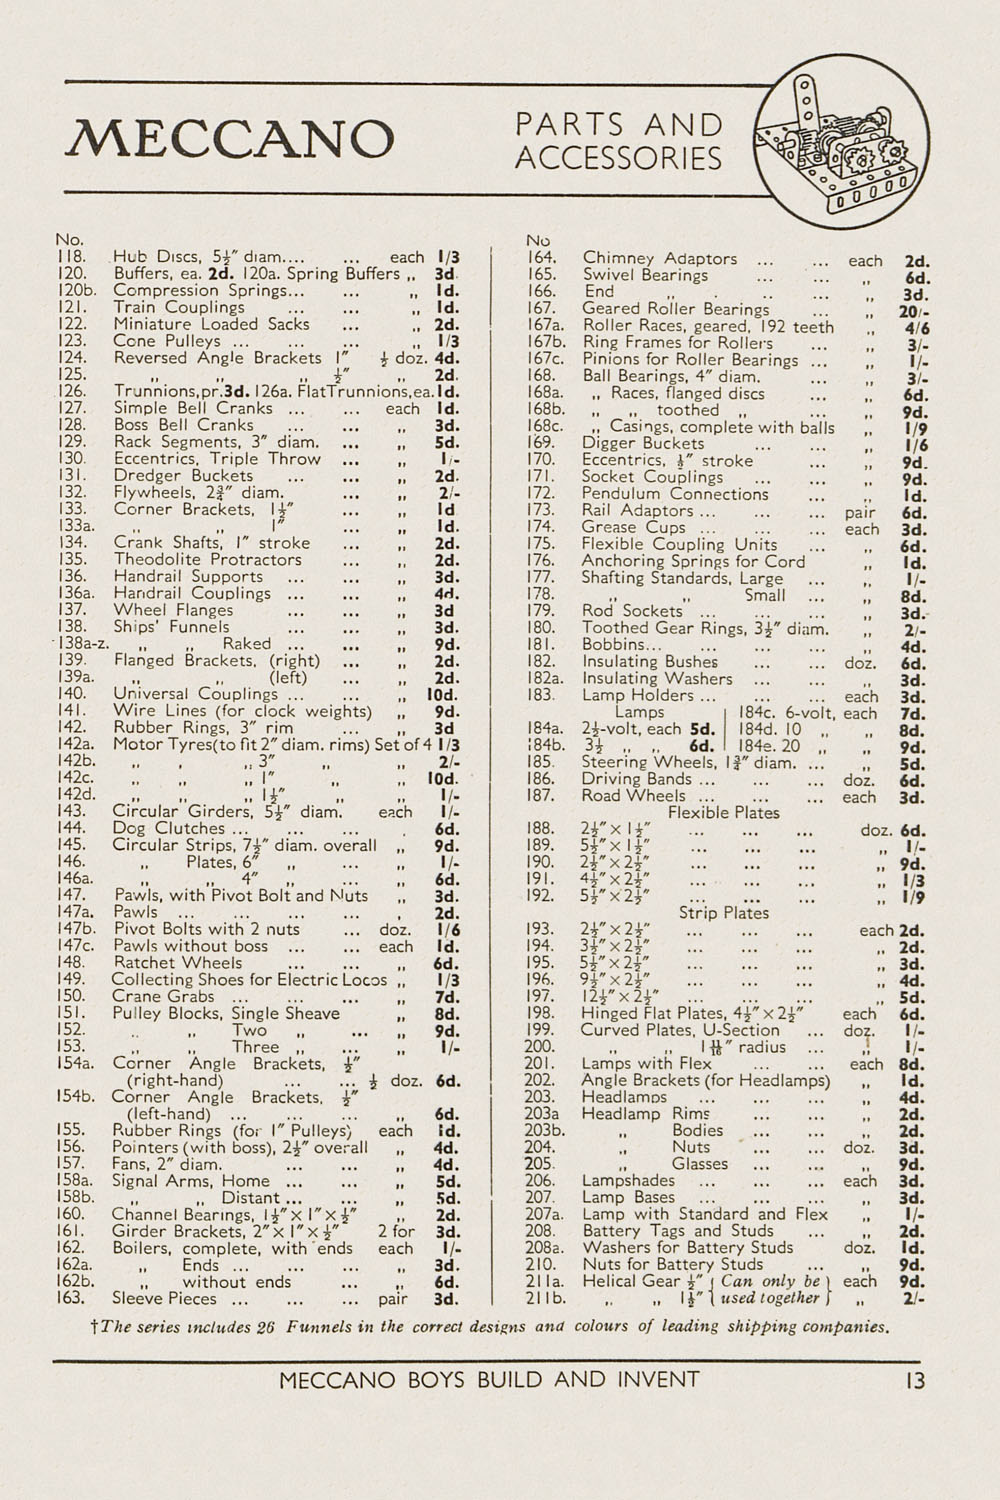 MECCANO
PARTS AND
ACCESSORIES
No.
118. Hub Discs, 5½″ diam.... ... each 1/3
120. Buffers, ea. 2d. 120a. Spring Buffers ,, 3d.
120b. Compression Springs... ... ,, 1d.
121. Train Couplings ... ... ,, 1d.
122. Miniature Loaded Sacks ... ,, 2d.
123. Cone Pulleys ... ... ... ,, 1/3
124. Reversed Angle Brackets 1″ ½ doz. 4d.
125. ,, ,, ,, ½″ ,, 2d.
126. Trunnions,pr.3d. 126a. FlatTrunnions,ea.1d.
127. Simple Bell Cranks ... ... each 1d.
128. Boss Bell Cranks ... ... ,, 3d.
129. Rack Segments, 3″ diam. ... ,, 5d.
130. Eccentrics, Triple Throw ... ,, 1/-
131. Dredger Buckets ... ... ,, 2d.
132. Flywheels, 2¾″ diam. ... ,, 2/-
133. Corner Brackets, 1½″ ... ,, 1d
133a. ,, ,, 1″ ... ,, 1d.
134. Crank Shafts, 1″ stroke ... ,, 2d.
135. Theodolite Protractors ... ,, 2d.
136. Handrail Supports ... ... ,, 3d.
136a. Handrail Couplings ... ... ,, 4d.
137. Wheel Flanges ... ... ,, 3d
138. Ships' Funnels ... ... ,, 3d.
138a-z. ,, ,, Raked ... ... ,, 9d.
139. Flanged Brackets, (right) ... ,, 2d.
139a. ,, ,, (left) ... ,, 2d.
140. Universal Couplings ... ... ,, 10d.
141. Wire Lines (for clock weights) ,, 9d.
142. Rubber Rings, 3″ rim ... ,, 3d
142a. Motor Tyres(to fit 2″ diam. rims) Set of 4 1/3
142b. ,, ,, ,, 3″ ,, ,, 2/-
142c. ,, ,, ,, 1″ ,, ,, 10d.
142d. ,, ,, ,, 1½″ ,, ,, 1/-
143. Circular Girders, 5½″ diam. each 1/-
144. Dog Clutches ... ... ... . 6d.
145. Circular Strips, 7½″ diam. overall ,, 9d.
146. ,, Plates, 6″ ,, ... ,, 1/-
146a. ,, ,, 4″ ,, ... ,, 6d.
147. Pawls, with Pivot Bolt and Nuts ,, 3d.
147a. Pawls ... ... ... ... , 2d.
147b. Pivot Bolts with 2 nuts ... doz. 1/6
147c. Pawls without boss ... ... each 1d.
148. Ratchet Wheels ... ... ,, 6d.
149. Collecting Shoes for Electric Locos ,, 1/3
150. Crane Grabs ... ... ... ,, 7d.
151. Pulley Blocks, Single Sheave ,, 8d.
152. ,, ,, Two ,, ... ,, 9d.
153. ,, ,, Three ,, ... ,, 1/-
154a. Corner Angle Brackets, ½″
(right-hand) ... ... ½ doz. 6d.
154b. Corner Angle Brackets, ½″
(left-hand) ... ... ... ,, 6d.
155. Rubber Rings (for 1″ Pulleys) each 1d.
156. Pointers (with boss), 2½″ overall ,, 4d.
157. Fans, 2″ diam. ... ... ,, 4d.
158a. Signal Arms, Home ... ... ,, 5d.
158b. ,, ,, Distant ... ... ,, 5d.
160. Channel Bearings, 1½″ × 1″ × ½″ ,, 2d.
161. Girder Brackets, 2″ × 1″ × ½″ 2 for 3d.
162. Boilers, complete, with ends each 1/-
162a. ,, Ends ... ... ... ,, 3d.
162b. ,, without ends ... ,, 6d.
163. Sleeve Pieces ... ... ... pair 3d.
No
164. Chimney Adaptors ... ... each 2d.
165. Swivel Bearings ... ... ,, 6d.
166. End ,, . .. ... ,, 3d.
167. Geared Roller Bearings ... ,, 20/-
167a. Roller Races, geared, 192 teeth ,, 4/6
167b. Ring Frames for Rollers ... ,, 3/-
167c. Pinions for Roller Bearings ... ,, 1/-
168. Ball Bearings, 4″ diam. ... ,, 3/-
168a. ,, Races, flanged discs ... ,, 6d.
168b. ,, ,, toothed ,, ... ,, 9d.
168c. ,, Casings, complete with balls ,, 1/9
169. Digger Buckets ... ... ,, 1/6
170. Eccentrics, ½″ stroke ... ,, 9d.
171. Socket Couplings ... ... ,, 9d.
172. Pendulum Connections ... ,, 1d.
173. Rail Adaptors ... ... ... pair 6d.
174. Grease Cups ... ... ... each 3d.
175. Flexible Coupling Units ... ,, 6d.
176. Anchoring Springs for Cord ,, 1d.
177. Shafting Standards, Large ... ,, 1/-
178. ,, ,, Small ... ,, 8d.
179. Rod Sockets ... ... ... ,, 3d.
180. Toothed Gear Rings, 3½″ diam. ,, 2/-
181. Bobbins... ... ... ... ,, 4d.
182. Insulating Bushes ... ... doz. 6d.
182a. Insulating Washers ... ... ,, 3d.
183. Lamp Holders ... ... ... each 3d.
Lamps | 184c. 6-volt, each 7d.
184a. 2½-volt, each 5d. | 184d. 10 ,, ,, 8d.
184b. 3½ ,, ,, 6d. | 184e. 20 ,, ,, 9d.
185. Steering Wheels, 1¾″ diam. ... ,, 5d.
186. Driving Bands ... ... ... doz. 6d.
187. Road Wheels ... ... ... each 3d.
Flexible Plates
188. 2½″ × 1½″ ... ... ... doz. 6d.
189. 5½″ × 1½″ ... ... ... ,, 1/-
190. 2½″ × 2½″ ... ... ... ,, 9d.
191. 4½″ × 2½″ ... ... ... ,, 1/3
192. 5½″ × 2½″ ... ... ... ,, 1/9
Strip Plates
193. 2½″ × 2½″ ... ... ... each 2d.
194. 3½″ × 2½″ ... ... ... ,, 2d.
195. 5½″ × 2½″ ... ... ... ,, 3d.
196. 9½″ × 2½″ ... ... ... ,, 4d.
197. 12½″ × 2½″ ... ... ... ,, 5d.
198. Hinged Flat Plates, 4½″ × 2½″ each 6d.
199. Curved Plates, U-Section ... doz. 1/-
200. ,, ,, 1 11/16″ radius ... ,, 1/-
201. Lamps with Flex ... ... each 8d.
202. Angle Brackets (for Headlamps) ,, 1d.
203. Headlamps ... ... ... ,, 4d.
203a Headlamp Rims ... ... ,, 2d.
203b. ,, Bodies ... ... ,, 2d.
204. ,, Nuts ... ... doz. 3d.
205. ,, Glasses ... ... ,, 9d.
206. Lampshades ... ... ... each 3d.
207. Lamp Bases ... ... ... ,, 3d.
207a. Lamp with Standard and Flex ,, 1/-
208. Battery Tags and Studs ... ,, 2d.
208a. Washers for Battery Studs doz. 1d.
210. Nuts for Battery Studs ... ,, 9d.
211a. Helical Gear ½″ { Can only be } each 9d.
211b. ,, ,, 1½″ { used together } ,, 2/-
†The series includes 26 Funnels in the correct designs and colours of leading shipping companies.
MECCANO BOYS BUILD AND INVENT 13